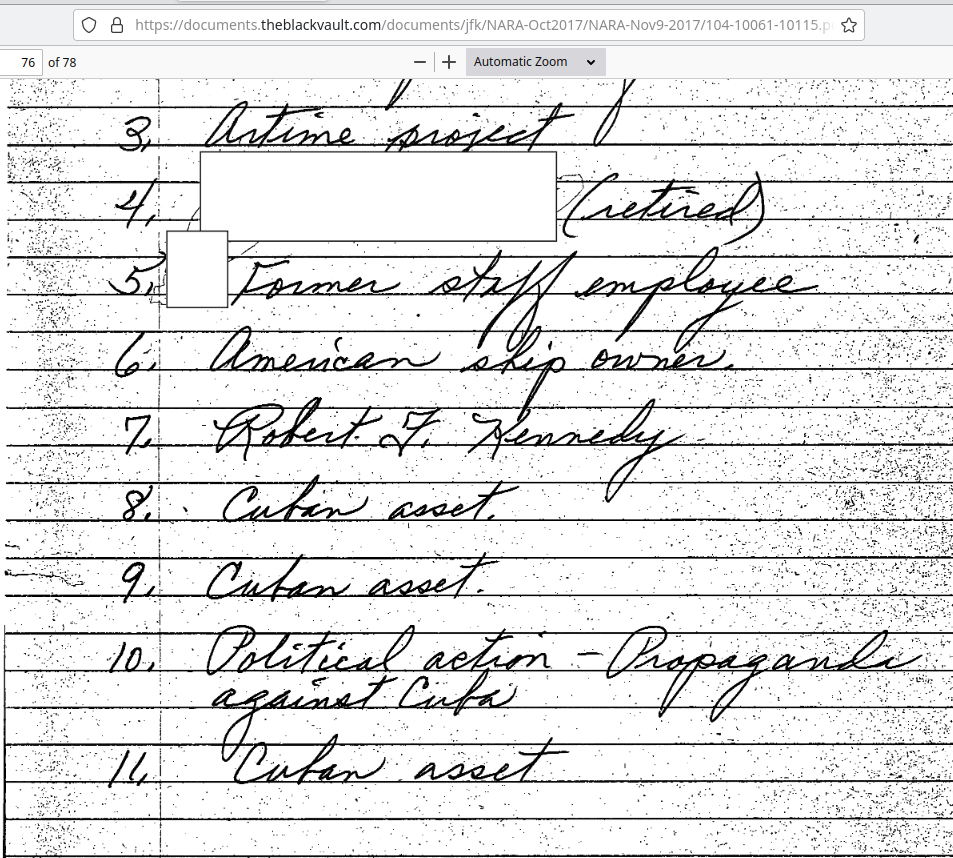 https://documents.theblackvault.com/documents/jfk/NARA-Oct2017/NARA-Nov9-2017/104-10061-10115.p
76 of 78 Automatic Zoom
3. Artime project
4. (retired)
5. Former staff employee
6. American ship owner.
7. Robert F. Kennedy
8. Cuban asset.
9. Cuban asset.
10. Political action - Propaganda
against Cuba
11. Cuban asset